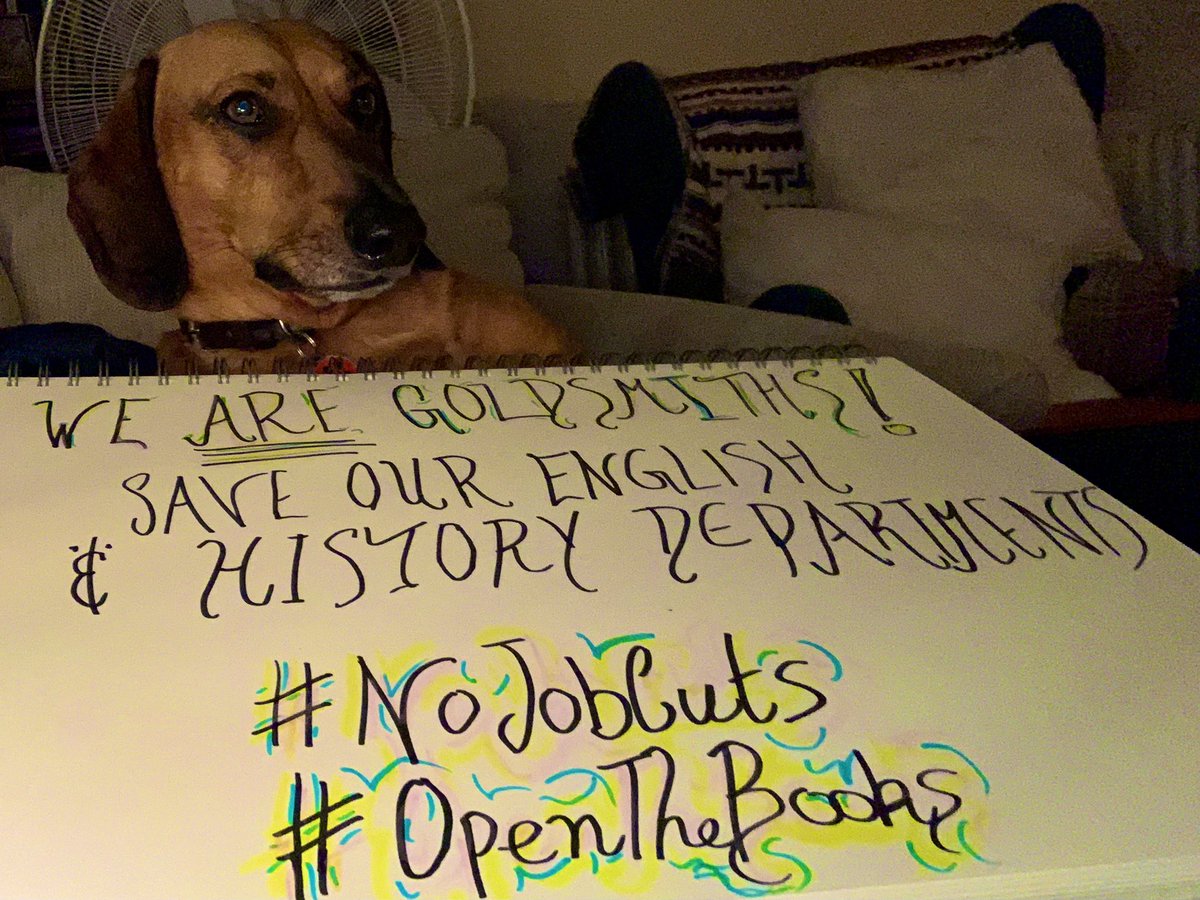 WE ARE GOLDSMITHS!
SAVE OUR ENGLISH
& HISTORY DEPARTMENTS
#NoJobCuts
#OpenTheBooks